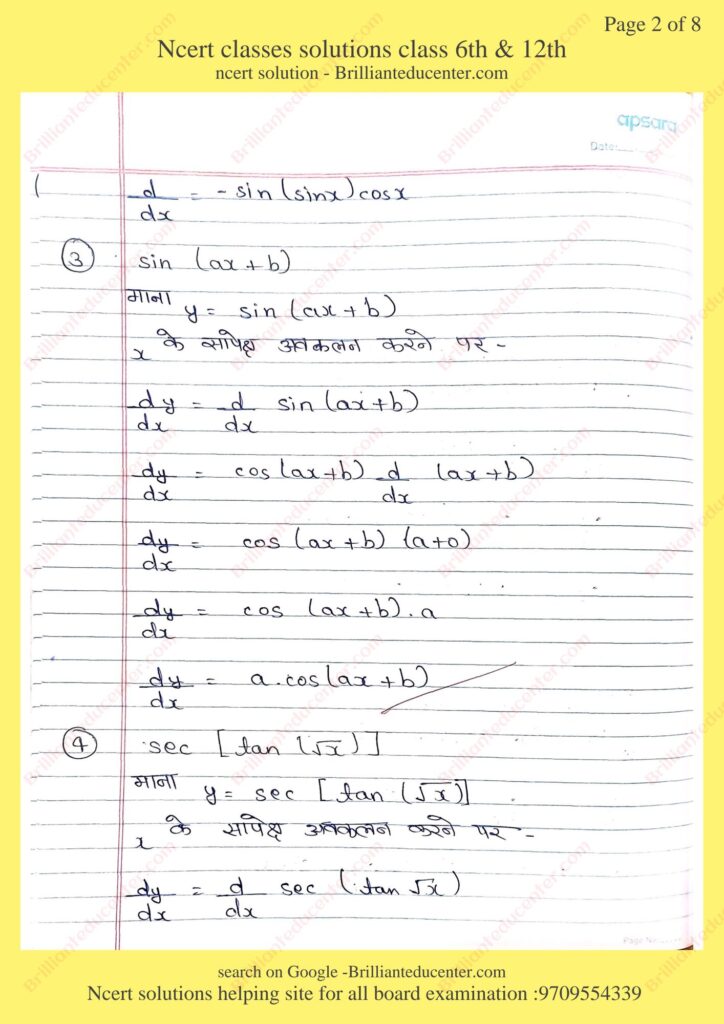 Page 2 of 8
Ncert classes solutions class 6th & 12th
ncert solution - Brillianteducenter.com
apsara
Date:
d/dx = - sin (sinx) cosx
③ sin (ax + b)
माना y = sin (ax + b)
x के सापेक्ष अवकलन करने पर -
dy/dx = d/dx sin (ax+b)
dy/dx = cos (ax+b) d/dx (ax+b)
dy/dx = cos (ax+b) (a+0)
dy/dx = cos (ax+b) . a
dy/dx = a.cos(ax+b)
④ sec [tan (√x)]
माना y = sec [tan (√x)]
x के सापेक्ष अवकलन करने पर -
dy/dx = d/dx sec (tan √x)
Page No.
search on Google -Brillianteducenter.com
Ncert solutions helping site for all board examination :9709554339
Brillianteducenter.com